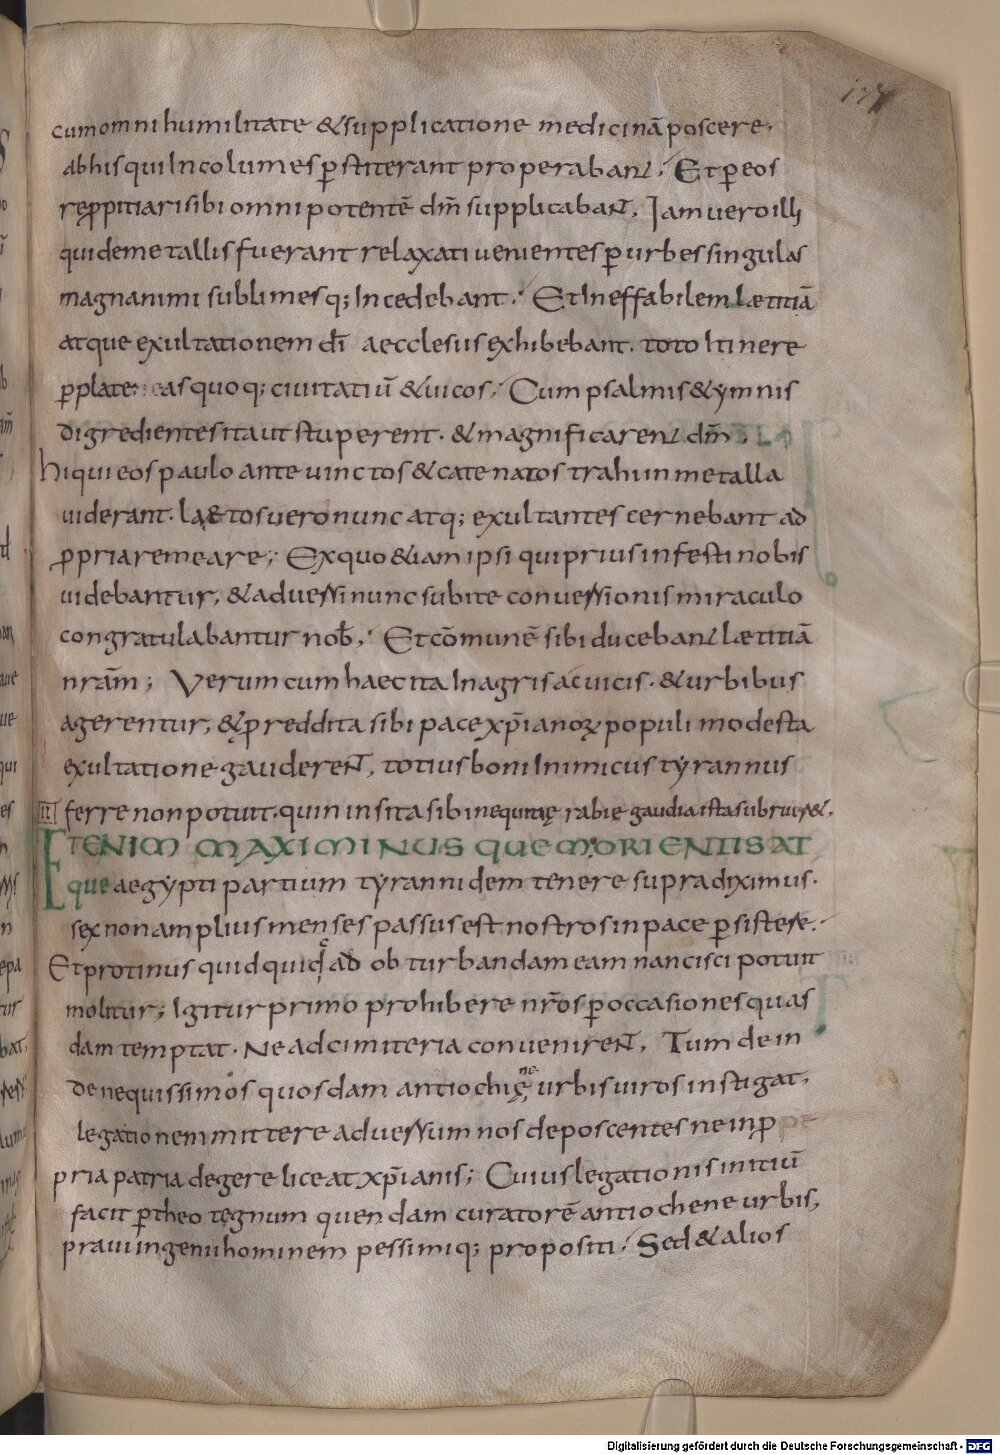 177
cum omni humilitate & supplicatione medicinā poscere.
ab his qui Incolumes p̄stiterant properabant. Et p̄ eos
rep̱pitiari sibi omnipotentē dm̄ supplicabant. Iam vero illi
qui de metallis fuerant relaxati venientes p̄ urbes singulas
magnanimi sublimesq; Incedebant. Et Ineffabilem lætitiā
atque exultationem dī aecclesus exhibebant. toto Itinere
p̄ plateas quoq; civitatiū & vicos. Cum psalmis & ymnis
digredientes ita ut stuperent. & magnificarent dm̄.
hi qui eos paulo ante vinctos & catenatos trahi in metalla
viderant. læ&tos vero nunc atq; exultantes cernebant ad
p̱pria remeare; Ex quo &iam ipsi qui prius infesti nobis
videbantur, & adversi nunc subite conversionis miraculo
congratulabantur nob̄. Et cōmunē sibi ducebant lætitiā
nrām; Verum cum haec ita In agris ac vicis. & urbibus
agerentur, & p̱ reddita sibi pace xp̄ianoꝝ populi modesta
exultatione gauderent, totius boni Inimicus tyrannus
II ferre non potuit. quin insita sibi nequitię rabie gaudia ista subruer&.
ETENIM MAXIMINUS QUEM ORIENTIS AT
que aegypti partium tyrannidem tenere supra diximus.
sex non amplius menses passus est nostros in pace p̄sistere.
Et protinus quidquid ad obturbandam eam nancisci potuit
molitur; Igitur primo prohibere nr̄os p̄ occasiones quas
dam temptat. Ne ad cimiteria convenirent. Tum dein
de nequissimos quosdam antiochię ne urbis viros instigat.
legationem mittere adversum nos deposcentes ne in p̱
pria patria degere liceat xp̄ianis; Cuius legationis initiū
facit p̄ theotegnum quendam curatorē antiochene urbis,
pravi ingenii hominem pessimiq; propositi. Sed & alios
Digitalisierung gefördert durch die Deutsche Forschungsgemeinschaft - DFG